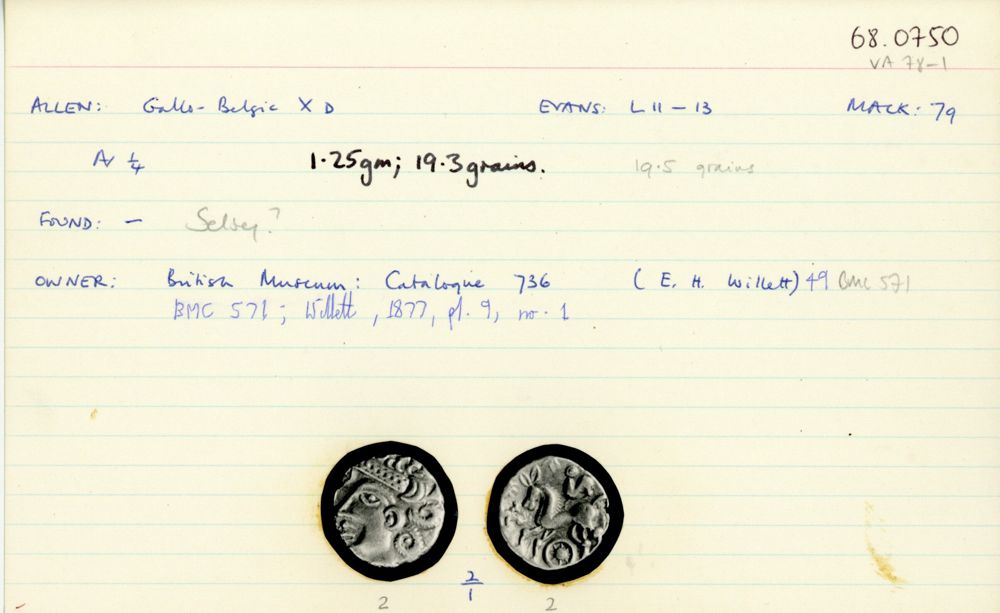 68.0750
VA 78-1
ALLEN: Gallo-Belgic X D EVANS: L 11-13 MACK: 79
AV 1/4 1.25gm; 19.3 grains. 19.5 grains
FOUND: - Selsey?
OWNER: British Museum: Catalogue 736 (E. H. Willett) 49 BMC 571
BMC 571; Willett, 1877, pl. 9, no. 1
2/1
2 2